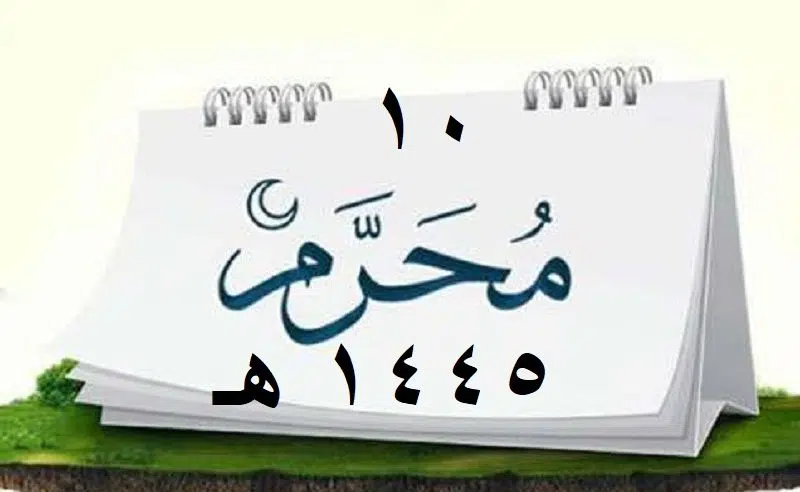 ١٠
مُحَرَّم
١٤٤٥ هـ